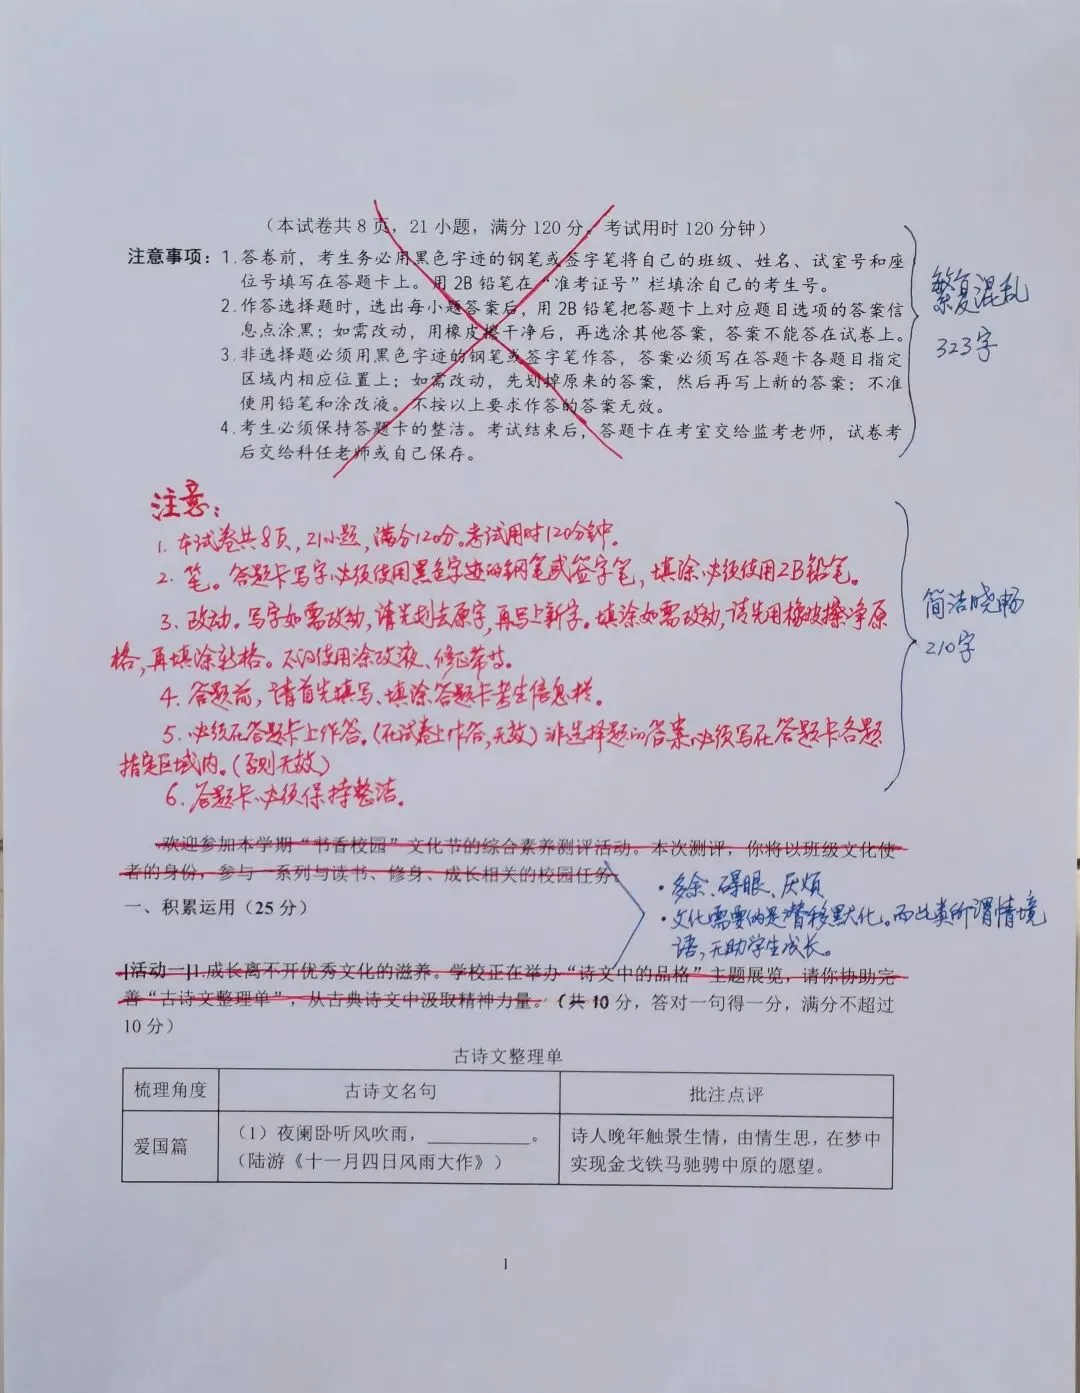 （本试卷共 8 页，21 小题，满分 120 分。考试用时 120 分钟）
注意事项：1. 答卷前，考生务必用黑色字迹的钢笔或签字笔将自己的班级、姓名、试室号和座
位号填写在答题卡上。用 2B 铅笔在“准考证号”栏填涂自己的考生号。
2. 作答选择题时，选出每小题答案后，用 2B 铅笔把答题卡上对应题目选项的答案信
息点涂黑；如需改动，用橡皮擦干净后，再选涂其他答案，答案不能答在试卷上。
3. 非选择题必须用黑色字迹的钢笔或签字笔作答，答案必须写在答题卡各题目指定
区域内相应位置上；如需改动，先划掉原来的答案，然后再写上新的答案；不准
使用铅笔和涂改液。不按以上要求作答的答案无效。
4. 考生必须保持答题卡的整洁。考试结束后，答题卡在考室交给监考老师，试卷考
后交给科任老师或自己保存。
繁复混乱
323字
注意：
1. 本试卷共8页，21小题，满分120分。考试用时120分钟。
2. 笔。答题卡写字必须使用黑色字迹的钢笔或签字笔，填涂必须使用2B铅笔。
3. 改动。写字如需改动，请先划去原字，再写上新字。填涂如需改动，请先用橡皮擦净原
格，再填涂新格。不得使用涂改液、修正带等。
4. 答题前，请首先填写、填涂答题卡考生信息栏。
5. 必须在答题卡上作答。（在试卷上作答，无效）非选择题的答案必须写在答题卡各题
指定区域内。（否则无效）
6. 答题卡必须保持整洁。
简洁晓畅
210字
欢迎参加本学期“书香校园”文化节的综合素养测评活动。本次测评，你将以班级文化使
者的身份，参与一系列与读书、修身、成长相关的校园任务。
·多余、碍眼、厌烦
·文化需要的是潜移默化。而此类所谓情境
语，无助学生成长。
一、积累运用（25 分）
[活动一]1.成长离不开优秀文化的滋养。学校正在举办“诗文中的品格”主题展览，请你协助完
善“古诗文整理单”，从古典诗文中汲取精神力量。（共 10 分，答对一句得一分，满分不超过
10 分）
古诗文整理单
梳理角度 古诗文名句 批注点评
爱国篇
（1）夜阑卧听风吹雨，__________。
（陆游《十一月四日风雨大作》）
诗人晚年触景生情，由情生思，在梦中
实现金戈铁马驰骋中原的愿望。
1